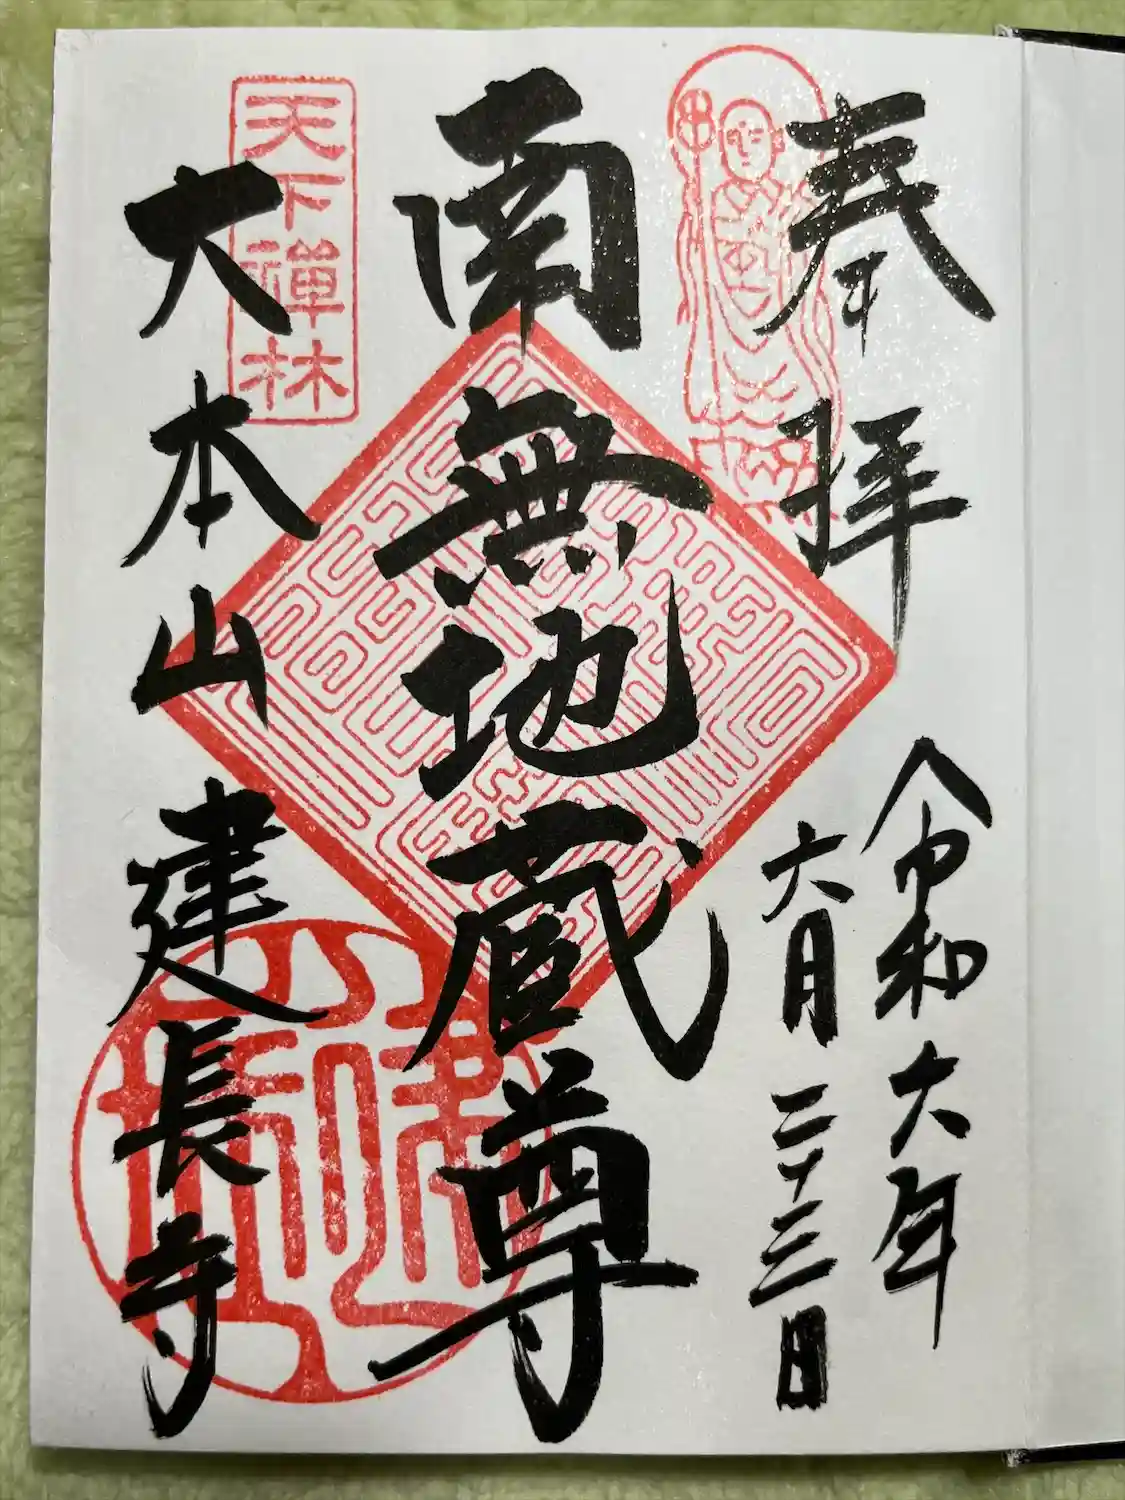 奉拝
令和六年
六月二十三日
南無地蔵尊
天下禪林
大本山建長寺